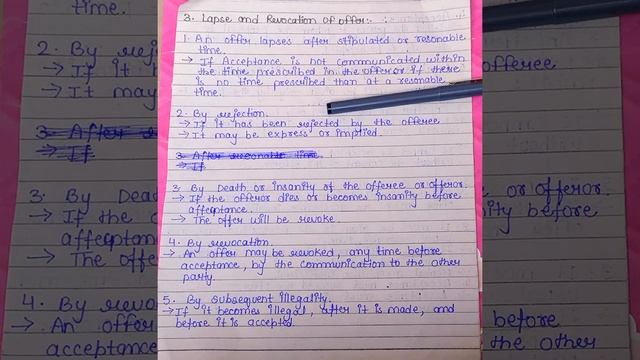 3. Lapse and Revocation Of offer:-
1. An offer lapses after stipulated or resonable
time.
→ If Acceptance is not communicated within
the time prescribed in the offer or if there
is no time prescribed than at a resonable
time.
2. By rejection.
→ If it has been rejected by the offeree
→ It may be express or implied.
3. After resonable time.
→ If
3. By Death or insanity of the offeree or offeror.
→ If the offeror dies or becomes insanity before
affeaptance.
→ The offer will be revoke.
4. By revocation.
→ An offer may be revoked, any time before
acceptance, by the communication to the other
party.
5. By subsequent illegality.
→ If it becomes illegal, after it is made, and
before it is accepted.